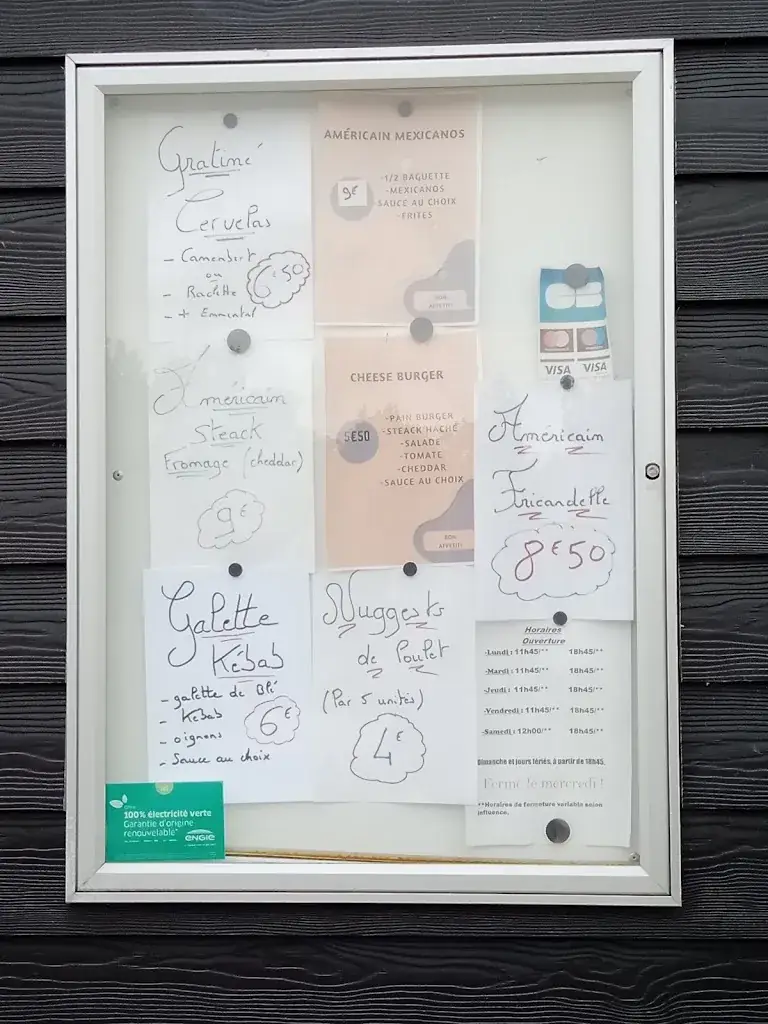 Gratiné
Cervelas
- Camembert
ou
- Raclette
- + Emmental
6€50
AMÉRICAIN MEXICANOS
9€
-1/2 BAGUETTE
-MEXICANOS
SAUCE AU CHOIX
-FRITES
BON
APPETIT!
CB
VISA VISA
Américain
Steack
Fromage (cheddar)
9€
CHEESE BURGER
5€50
-PAIN BURGER
-STEACK HACHÉ
-SALADE
-TOMATE
-CHEDDAR
-SAUCE AU CHOIX
BON
APPETIT!
Américain
Fricandelle
8€50
Galette
Kébab
- galette de Blé
- Kebab
- oignons
- Sauce au choix
6€
Nuggests
de Poulet
(Par 5 unités)
4€
Horaires
Ouverture
-Lundi : 11h45/** 18h45/**
-Mardi : 11h45/** 18h45/**
-Jeudi : 11h45/** 18h45/**
-Vendredi : 11h45/** 18h45/**
-Samedi : 12h00/** 18h45/**
Dimanche et jours fériés, à partir de 18h45.
Fermé le mercredi !
**Horaires de fermeture variable selon
influence.
100% électricité verte
Garantie d'origine
renouvelable*
ENGIE